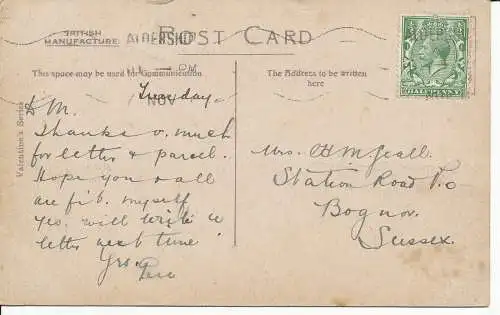 BRITISH
MANUFACTURE
POST CARD
ALDERSHOT
NOV
This space may be used for Communication
The Address to be written
here
Valentine's Series
HALFPENNY
Tuesday
D M.
Thanks so much
for letter & parcel.
Hope you & all
are fit. myself
yes. will write a
letter next time.
Yrs.
Mrs. H M
Station Road P.O
Bognor.
Sussex.